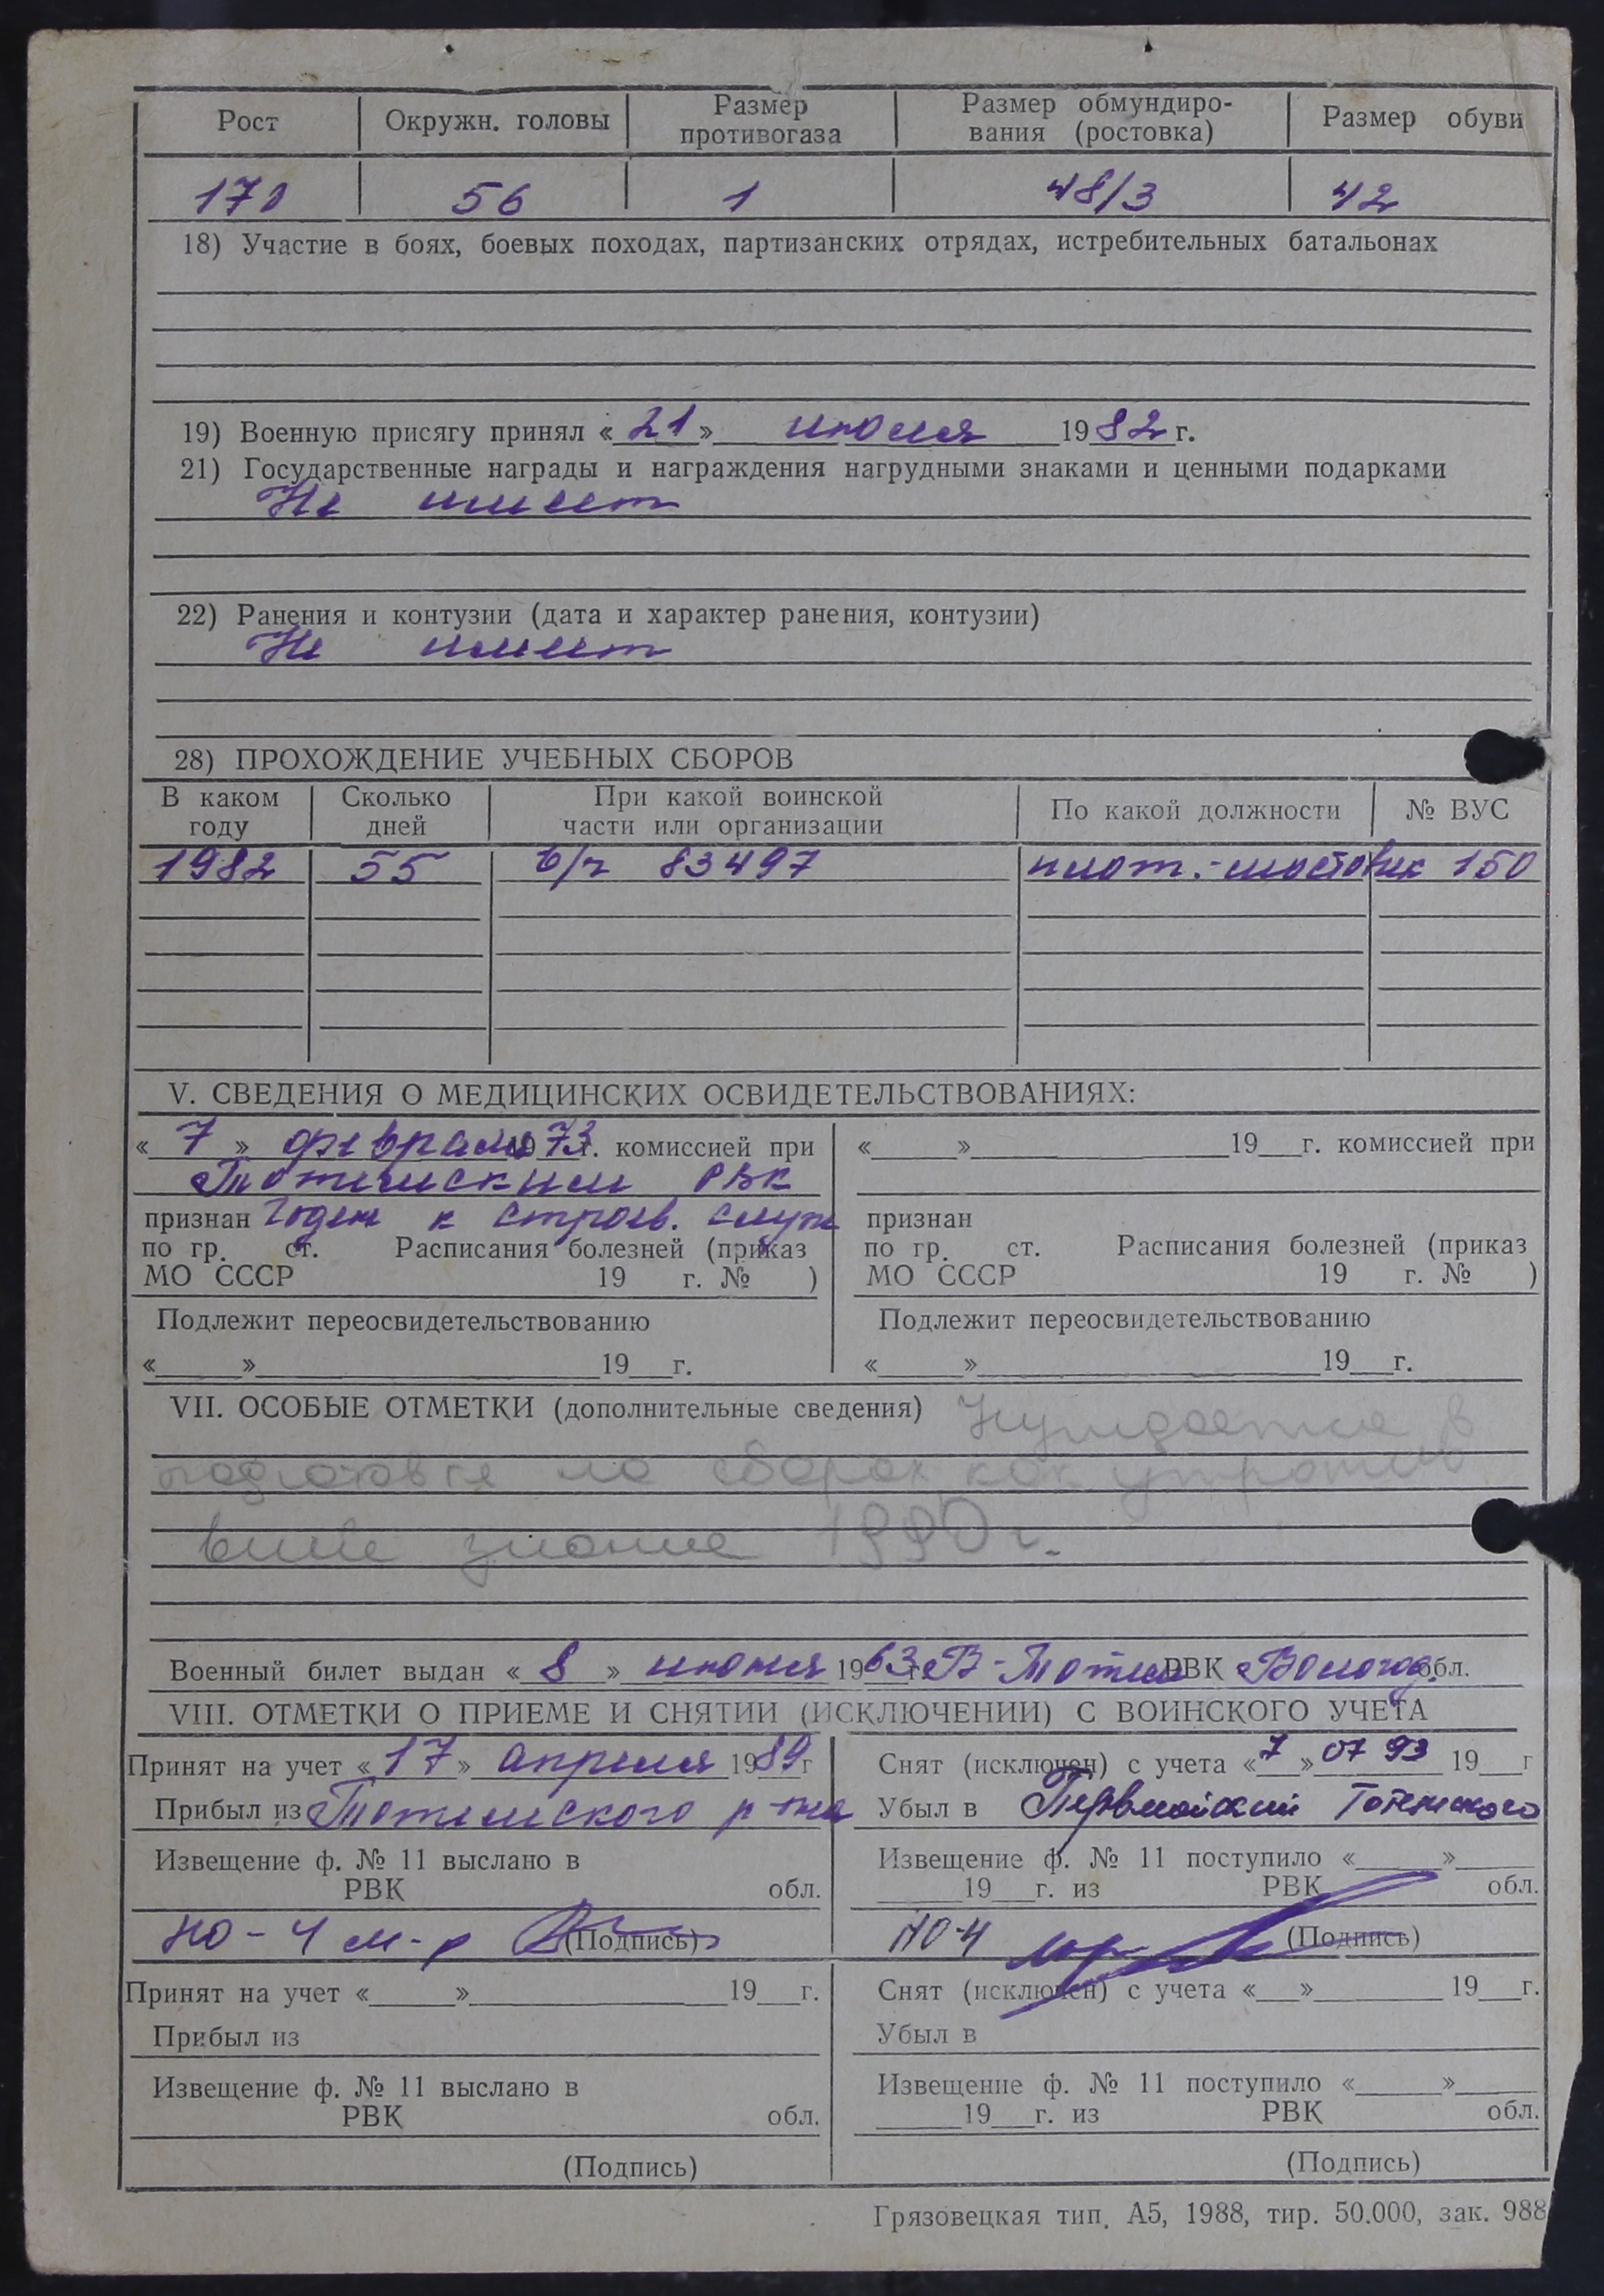 Рост Окружн. головы Размер противогаза Размер обмундиро-вания (ростовка) Размер обуви
170 56 1 48/3 42
18) Участие в боях, боевых походах, партизанских отрядах, истребительных батальонах
19) Военную присягу принял «21» июля 1982 г.
21) Государственные награды и награждения нагрудными знаками и ценными подарками
Не имеет
22) Ранения и контузии (дата и характер ранения, контузии)
Не имеет
28) ПРОХОЖДЕНИЕ УЧЕБНЫХ СБОРОВ
В каком году Сколько дней При какой воинской части или организации По какой должности № ВУС
1982 55 в/ч 83497 плот.-мостовик 150
V. СВЕДЕНИЯ О МЕДИЦИНСКИХ ОСВИДЕТЕЛЬСТВОВАНИЯХ:
«7» февраля 1973 г. комиссией при
Тотемским РВК
признан годен к строев. служ
по гр. ст. Расписания болезней (приказ
МО СССР 19 г. № )
Подлежит переосвидетельствованию
« » 19 г.
« » 19 г. комиссией при
признан
по гр. ст. Расписания болезней (приказ
МО СССР 19 г. № )
Подлежит переосвидетельствованию
« » 19 г.
VII. ОСОБЫЕ ОТМЕТКИ (дополнительные сведения) Нуждается в
подготовке на сборах как утратив
вший знание 1990 г.
Военный билет выдан «8» июня 1963 г. В-Тотем РВК Вологод. обл.
VIII. ОТМЕТКИ О ПРИЕМЕ И СНЯТИИ (ИСКЛЮЧЕНИИ) С ВОИНСКОГО УЧЕТА
Принят на учет «17» апреля 1989 г
Прибыл из Тотемского р-на
Извещение ф. № 11 выслано в
РВК обл.
НО-4 м-р (Подпись)
Снят (исключен) с учета «7» 07 93 19 г
Убыл в Первомайский Тотемского
Извещение ф. № 11 поступило « »
19 г. из РВК обл.
НО-4 (Подпись)
Принят на учет « » 19 г.
Прибыл из
Извещение ф. № 11 выслано в
РВК обл.
(Подпись)
Снят (исключен) с учета « » 19 г.
Убыл в
Извещение ф. № 11 поступило « »
19 г. из РВК обл.
(Подпись)
Грязовецкая тип. А5, 1988, тир. 50.000, зак. 988